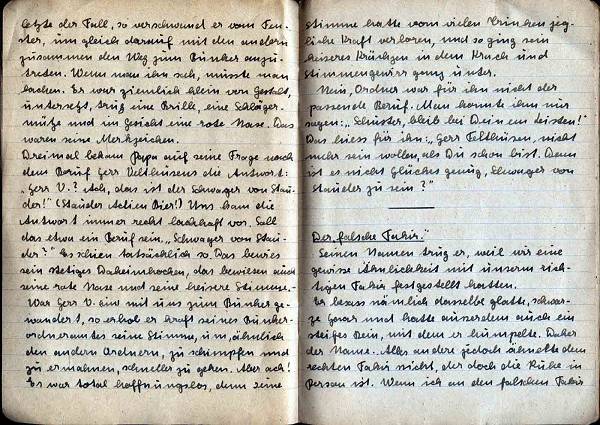 letzte der Fall, so verschwand er vom Fen-
ster, um gleich darauf mit den andern
zusammen den Weg zum Bunker anzu-
treten. Wenn man ihn sah, musste man
lachen. Er war ziemlich klein von Gestalt,
untersetzt, trug eine Brille, eine Schläger-
mütze und im Gesicht eine rote Nase. Das
waren seine Merkzeichen.
Dreimal bekam Papa auf seine Frage nach
dem Beruf Herr Velthusens die Antwort:
"Herr V.? Ach, das ist der Schwager von Stau-
der!" (Stauder Actien Bier!) Uns kam die
Antwort immer recht lachhaft vor. Soll
das etwa ein Beruf sein, "Schwager von Stau-
der?" Es schien tatsächlich so. Das bewies
sein stetiges Daheimhocken, das bewiesen auch
seine rote Nase und seine heisere Stimme.-
War Herr V. hin mit uns zum Bunker ge-
wandert, so erhob er kraft seines Bunker-
ordneramtes seine Stimme, um, ähnlich
den andern Ordnern, zu schimpfen und
zu ermahnen, schneller zu gehen. Aber ach!
Es war total hoffnungslos, denn seine
Stimme hatte vom vielen Trinken jeg-
liche Kraft verloren, und so ging sein
heiseres Krächzen in dem Krach und
Stimmengewirr ganz unter.
Nein, Ordner war für ihn nicht der
passende Beruf. Man konnte ihm nur
sagen: "Schuster, bleib bei Deinen Leisten!"
Das hiess für ihn: "Herr Felthusen, nicht
mehr sein wollen, als Du schon bist. Denn
ist es nicht Glücks genug, Schwager von
Stauder zu sein?"
"Der falsche Fakir."
Seinen Namen trug er, weil wir eine
gewisse Ähnlichkeit mit unserm rich-
tigen Fakir festgestellt hatten.
Er besass nämlich dasselbe glatte, schwar-
ze Haar und hatte ausserdem auch ein
steifes Bein, mit dem er humpelte. Daher
der Name. Alles andere jedoch ähnelte dem
rechten Fakir nicht, der doch die Ruhe in
Person ist. Wenn ich an den falschen Fakir